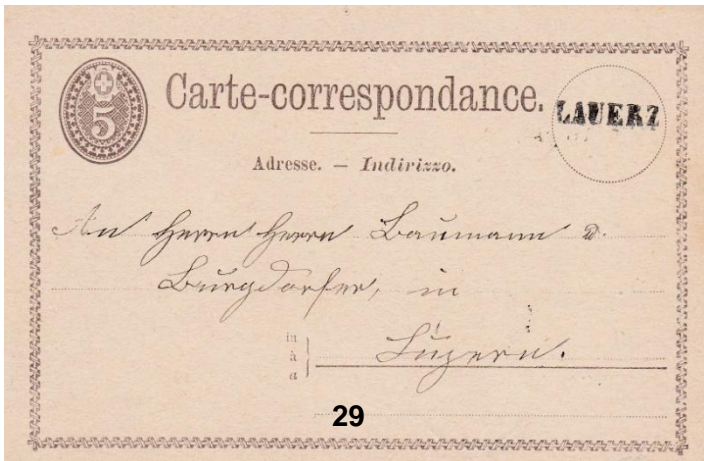 5
Carte-correspondance.
LAUERZ
Adresse. — Indirizzo.
An Herrn Herrn Baumann &
Burgdorfer, in
in
à
a
Luzern.
29